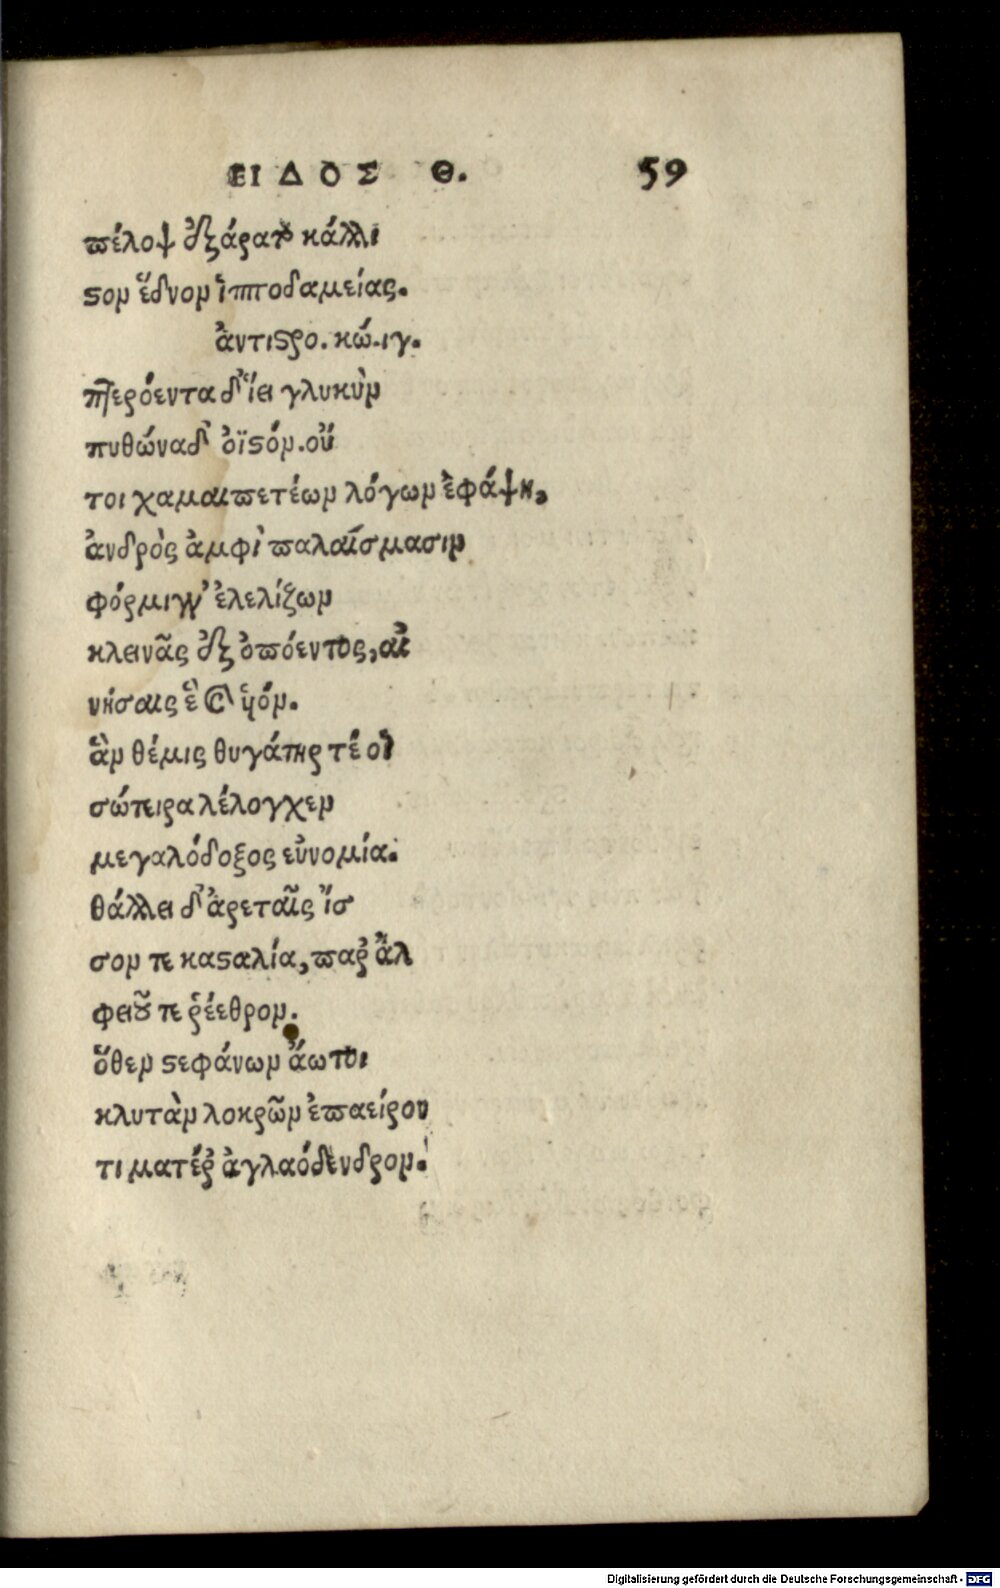 ΕΙΔΟΣ Θ. 59
πέλοψ ἐξάρατο κάλλι
στον ἕδνον ἱπποδαμείας.
ἀντιστρο. κώ. ιγ.
πτερόεντα δ' ἵει γλυκὺν
πυθώναδ' ὀϊστόν. οὔ
τοι χαμαιπετέων λόγων ἐφάψῃ,
ἀνδρὸς ἀμφὶ παλαίσμασιν
φόρμιγγ' ἐλελίζων
κλεινᾶς ἐξ ὀπόεντος, αἰ
νήσαις ἓ καὶ ὑιόν.
ἃν θέμις θυγάτηρ τέ οἱ
σώτειρα λέλογχεν
μεγαλόδοξος εὐνομία.
θάλλει δ' ἀρεταῖς ἴσ
σον τε κασταλία, παρ' ἀλ
φειοῦ τε ῥέεθρον.
ὅθεν στεφάνων ἄωτοι
κλυτὰν λοκρῶν ἐπαείρον
τι ματέρ' ἀγλαόδενδρον.
Digitalisierung gefördert durch die Deutsche Forschungsgemeinschaft - DFG